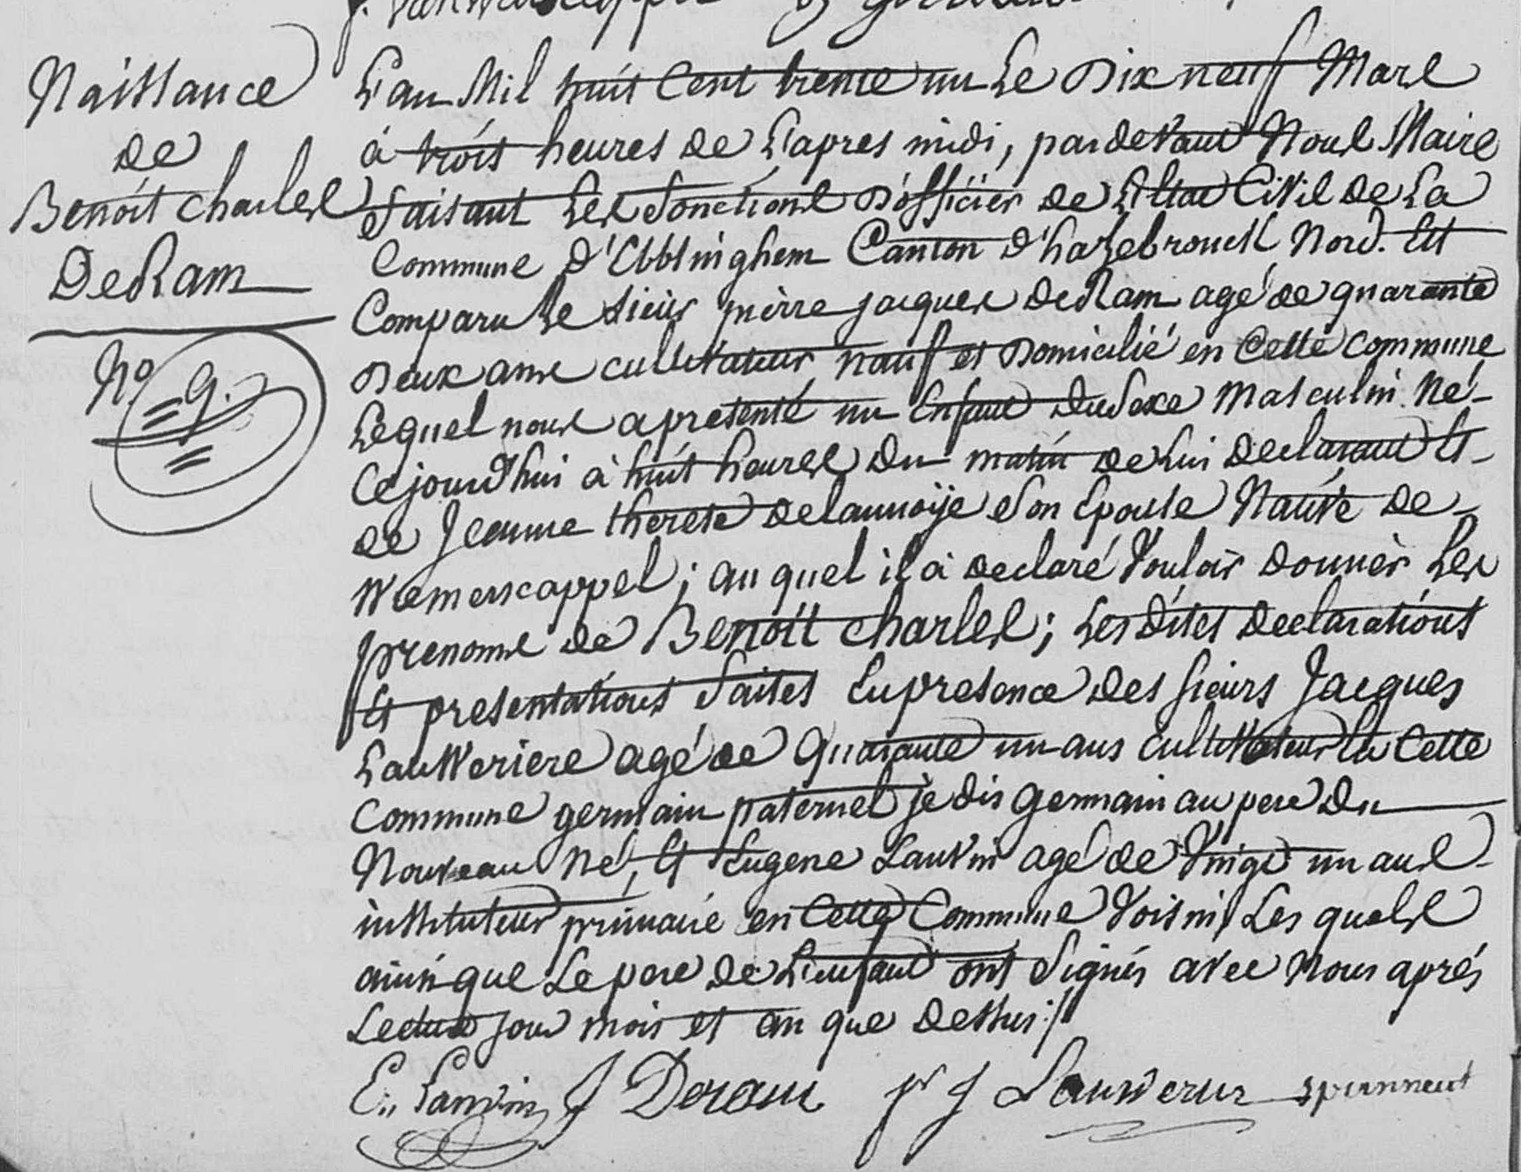 Naissance
de
Benoît Charles
DeRam
No 9.
L'an Mil huit Cent trente un Le Dix neuf Mars
à trois heures de L'apres midi, pardevant Nous Maire
faisant Les fonctions D'officier de L'Etat Civil de La
Commune d'Ebblinghem Canton d'hazebrouck Nord. Est
Comparu Le sieur pierre jacques DeRam agé de quarante
Deux ans cultivateur natif et Domicilié en Cette Commune
Lequel nous a presenté un Enfant du Sexe Masculin Né
Cejourd'hui à huit heures du matin de Lui Declarant Et
de Jeanne therese Delannoÿe Son Epouse Native de
Wemerscappel; au quel il a declaré Vouloir donner Les
prenoms de Benoit Charles; Les Dites Declarations
Et presentations faites En presence des sieurs Jacques
Lauweriere agé de quarante un ans Cultivateur En Cette
Commune germain paternel je dis germain au pere du
Nouveau Né, Et Eugene Lanvin agé de Vingt un ans
instituteur primaire en Cette Commune Voisin, Les quels
ainsi que Le pere de L'enfant ont Signés avec Nous après
Lecture jour mois et an que dessus
E. Lanvin J Deram pr J Lauwerier